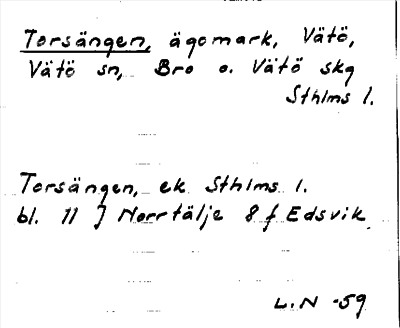 Torsängen, ägomark, Vätö,
Vätö sn, Bro o. Vätö skg
Sthlms l.
Torsängen, ek Sthlms l.
bl. 11 J Norrtälje 8 f Edsvik
L.N -59